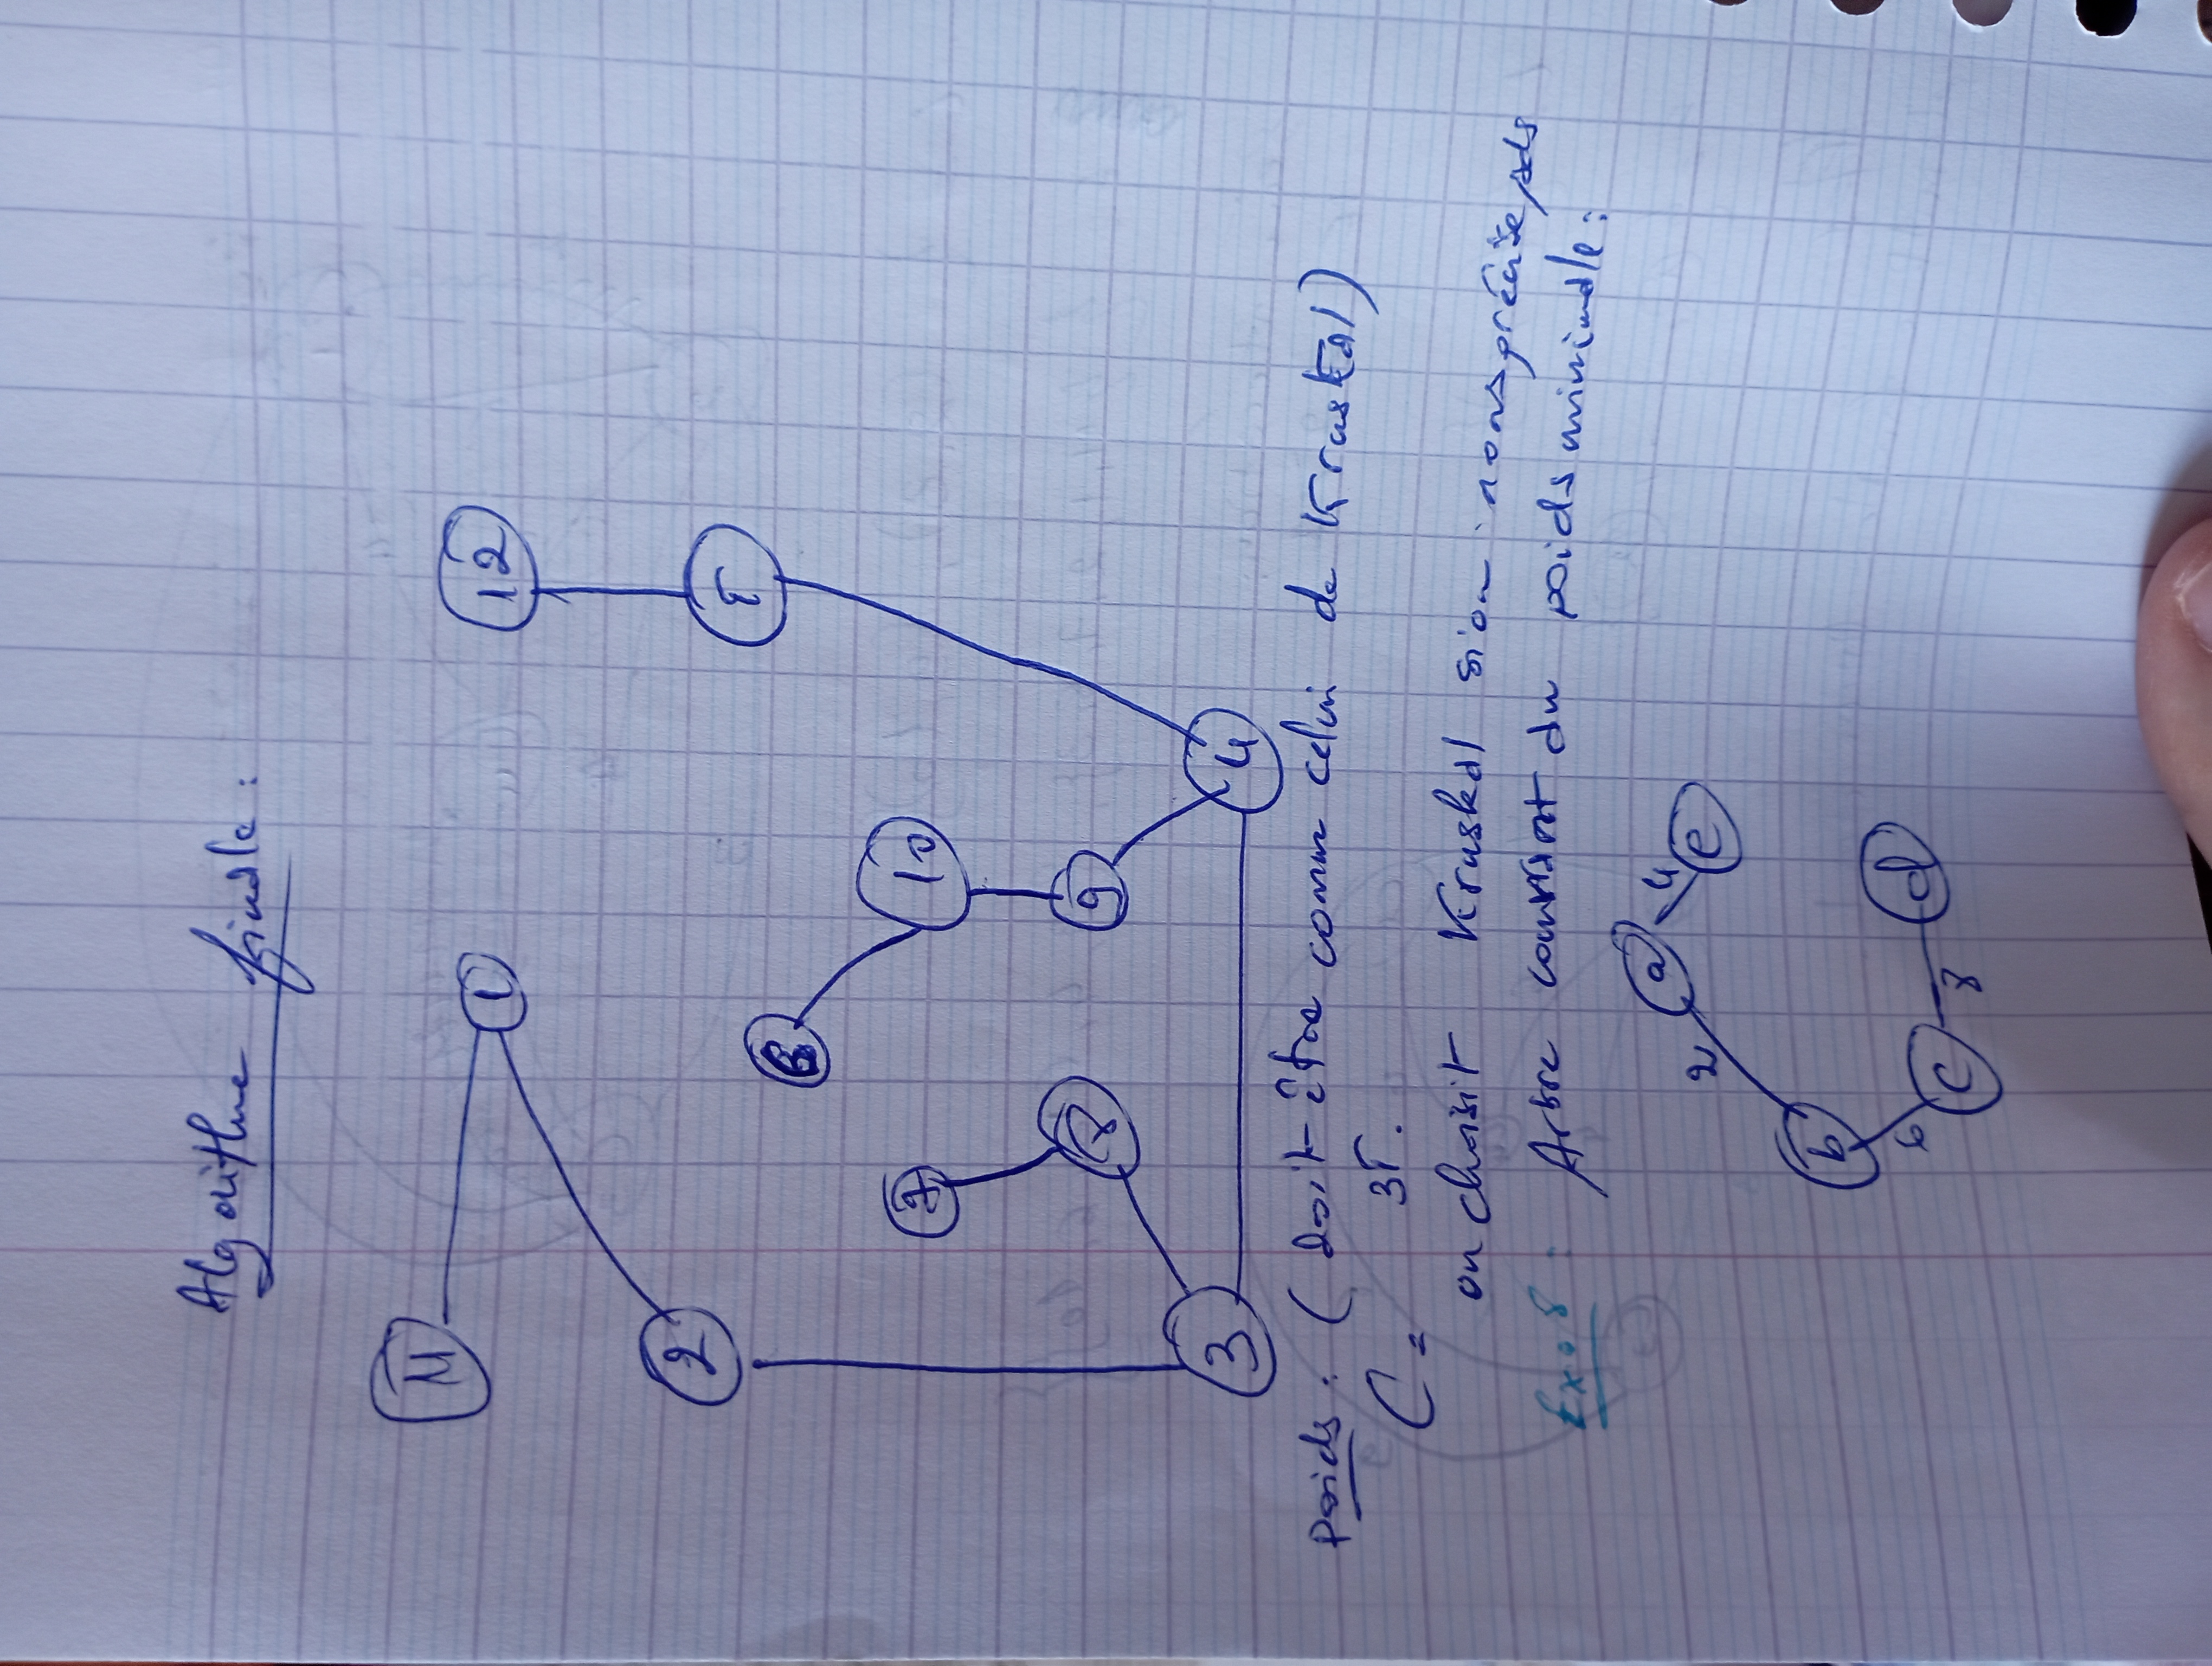 Algorithme finale :
11
1
12
2
5
6
10
7
8
9
3
4
poids : ( doit être comme celui de Kruskal )
C = 35.
on choisit Kruskal si on nous précise pas
Ex. 8 : Arbre couvrant du poids minimale :
a
4
e
2
b
6
c
8
d